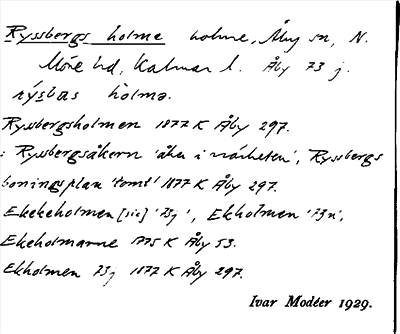 Ryssbergs holme holme, Åby sn, N.
Möre hd, Kalmar l. Åby 73 j.
rýsbas hòlmə.
Ryssbergsholmen 1877 K Åby 297.
: Ryssbergsåkern 'åker i närheten', Ryssbergs
boningsplan 'tomt' 1877 K Åby 297.
Ekekeholmen [sic] '73j', Ekholmen '73n',
Ekeholmarne 1775 K Åby 53.
Ekholmen 73j 1877 K Åby 297.
Ivar Modéer 1929.